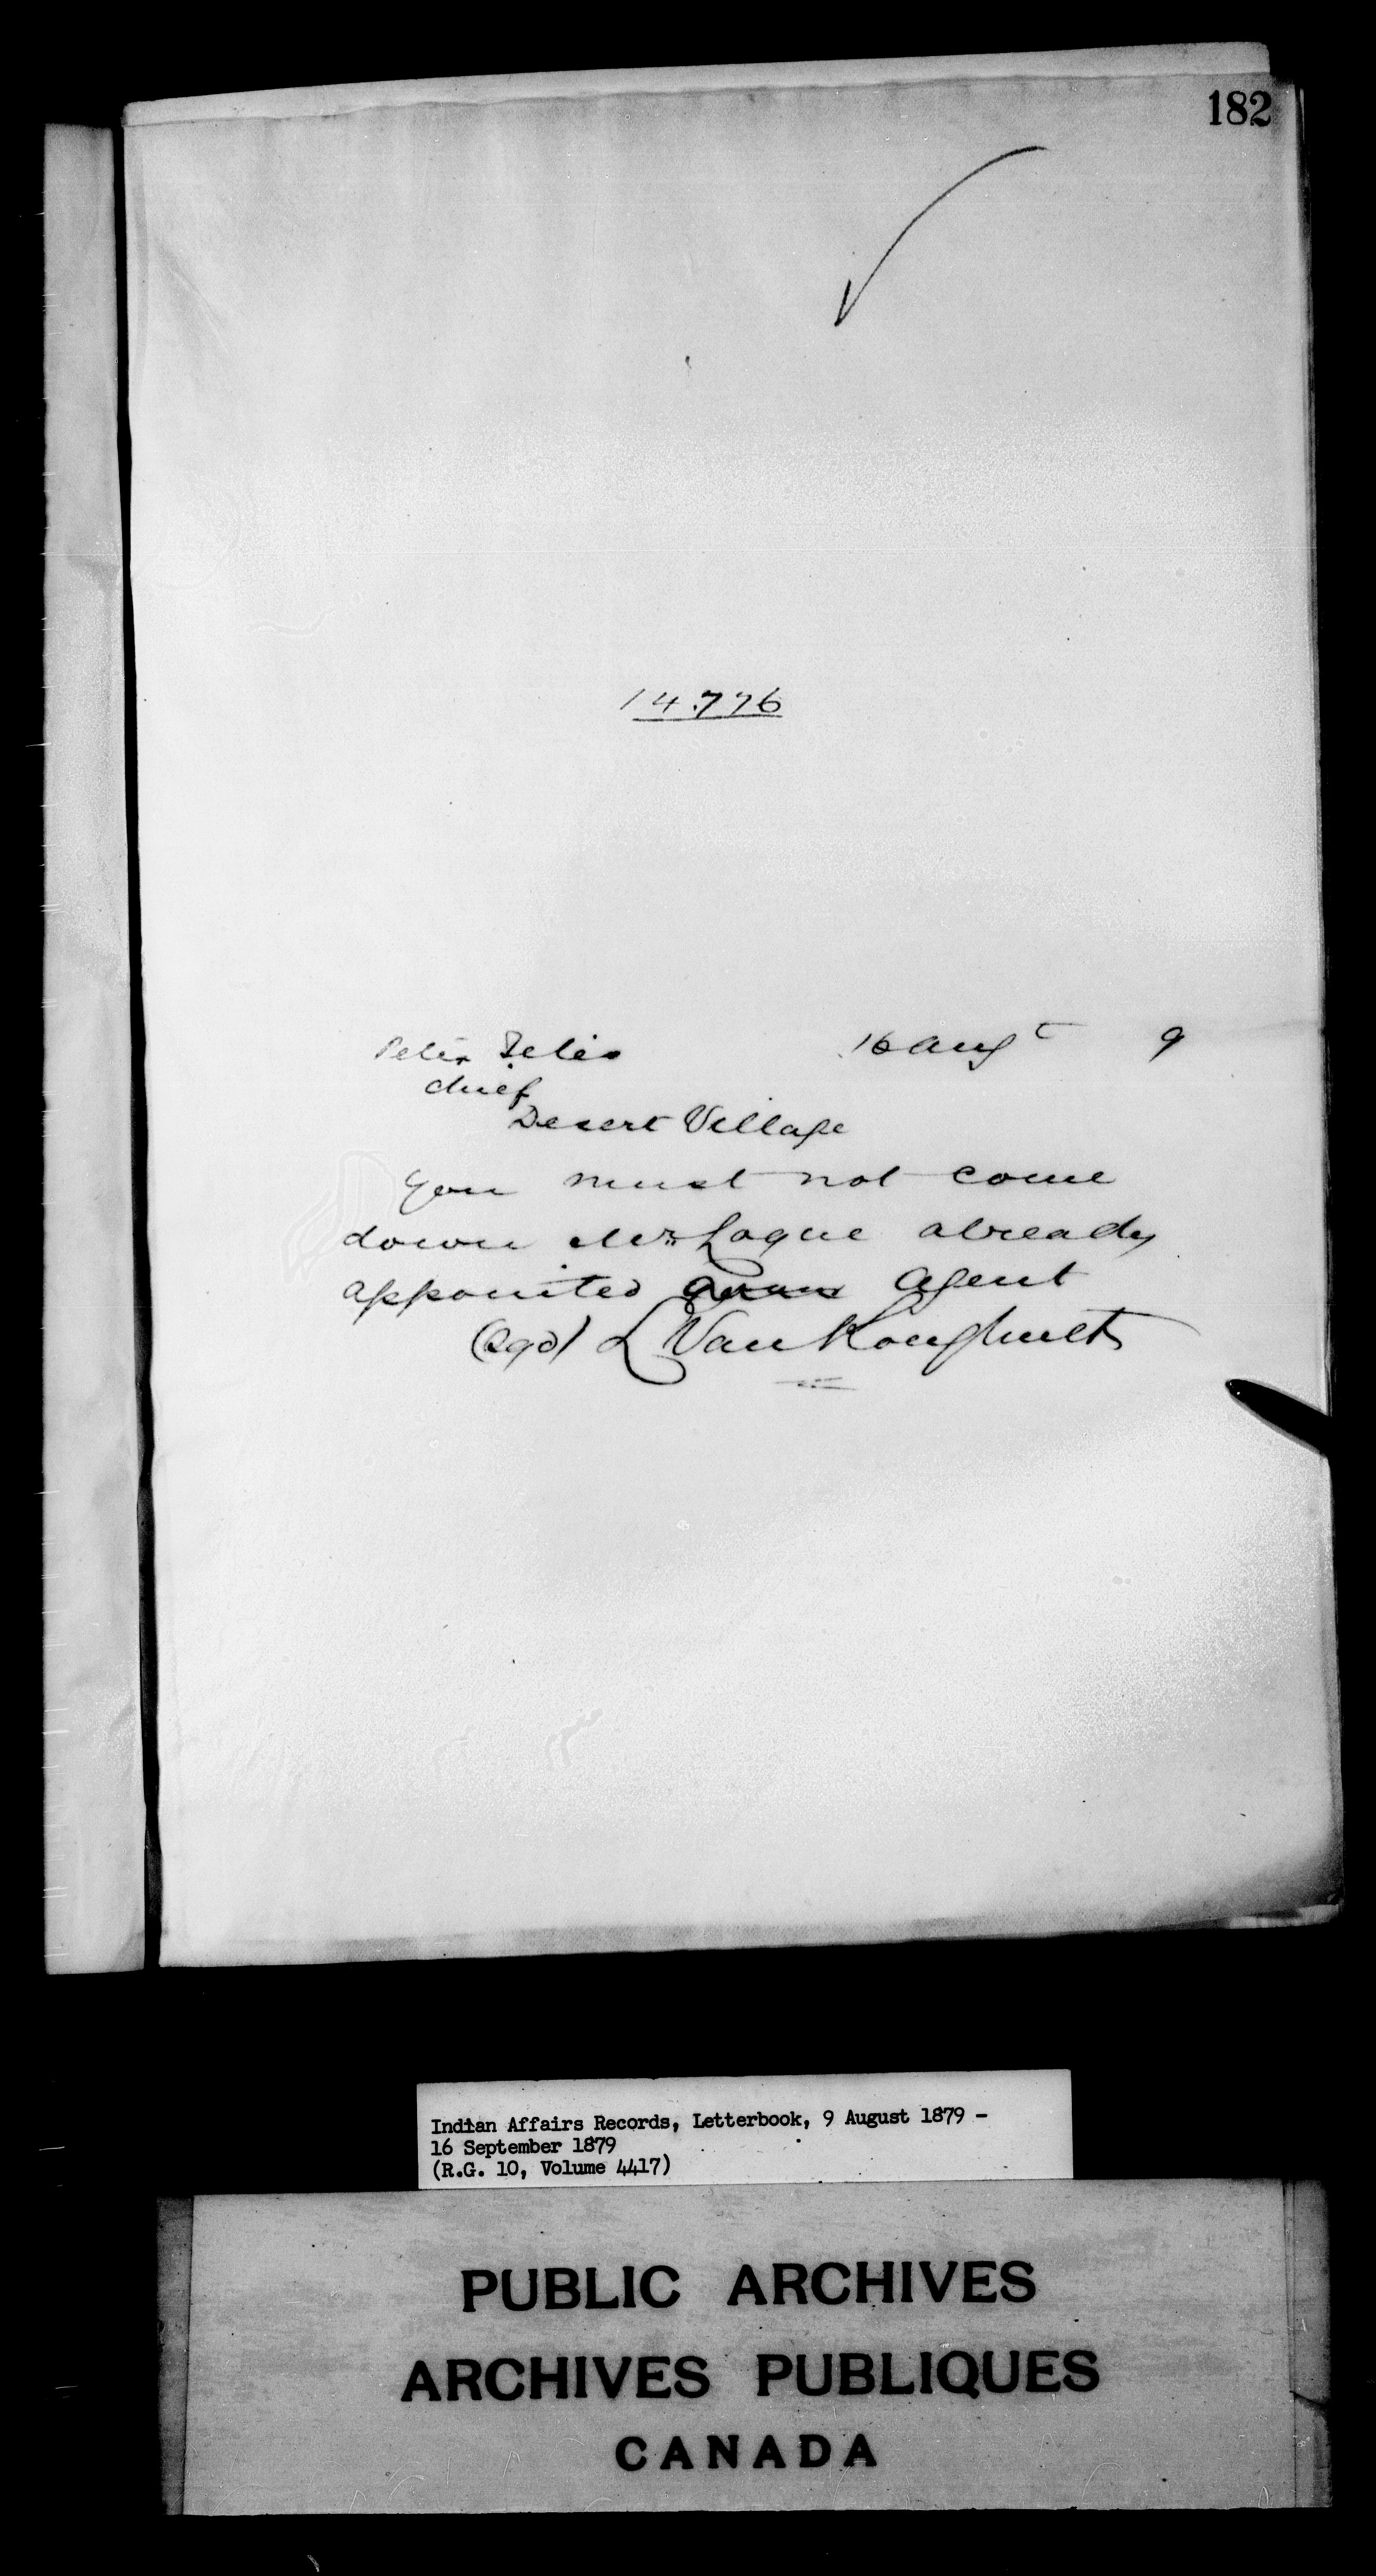 182
14.776
Peter Telis 16 Augt 9
Chief
Desert Village
You must not come
down Mr Logue already
appointed Agent
(Sgd) L VanKoughnet
Indian Affairs Records, Letterbook, 9 August 1879 -
16 September 1879
(R.G. 10, Volume 4417)
PUBLIC ARCHIVES
ARCHIVES PUBLIQUES
CANADA